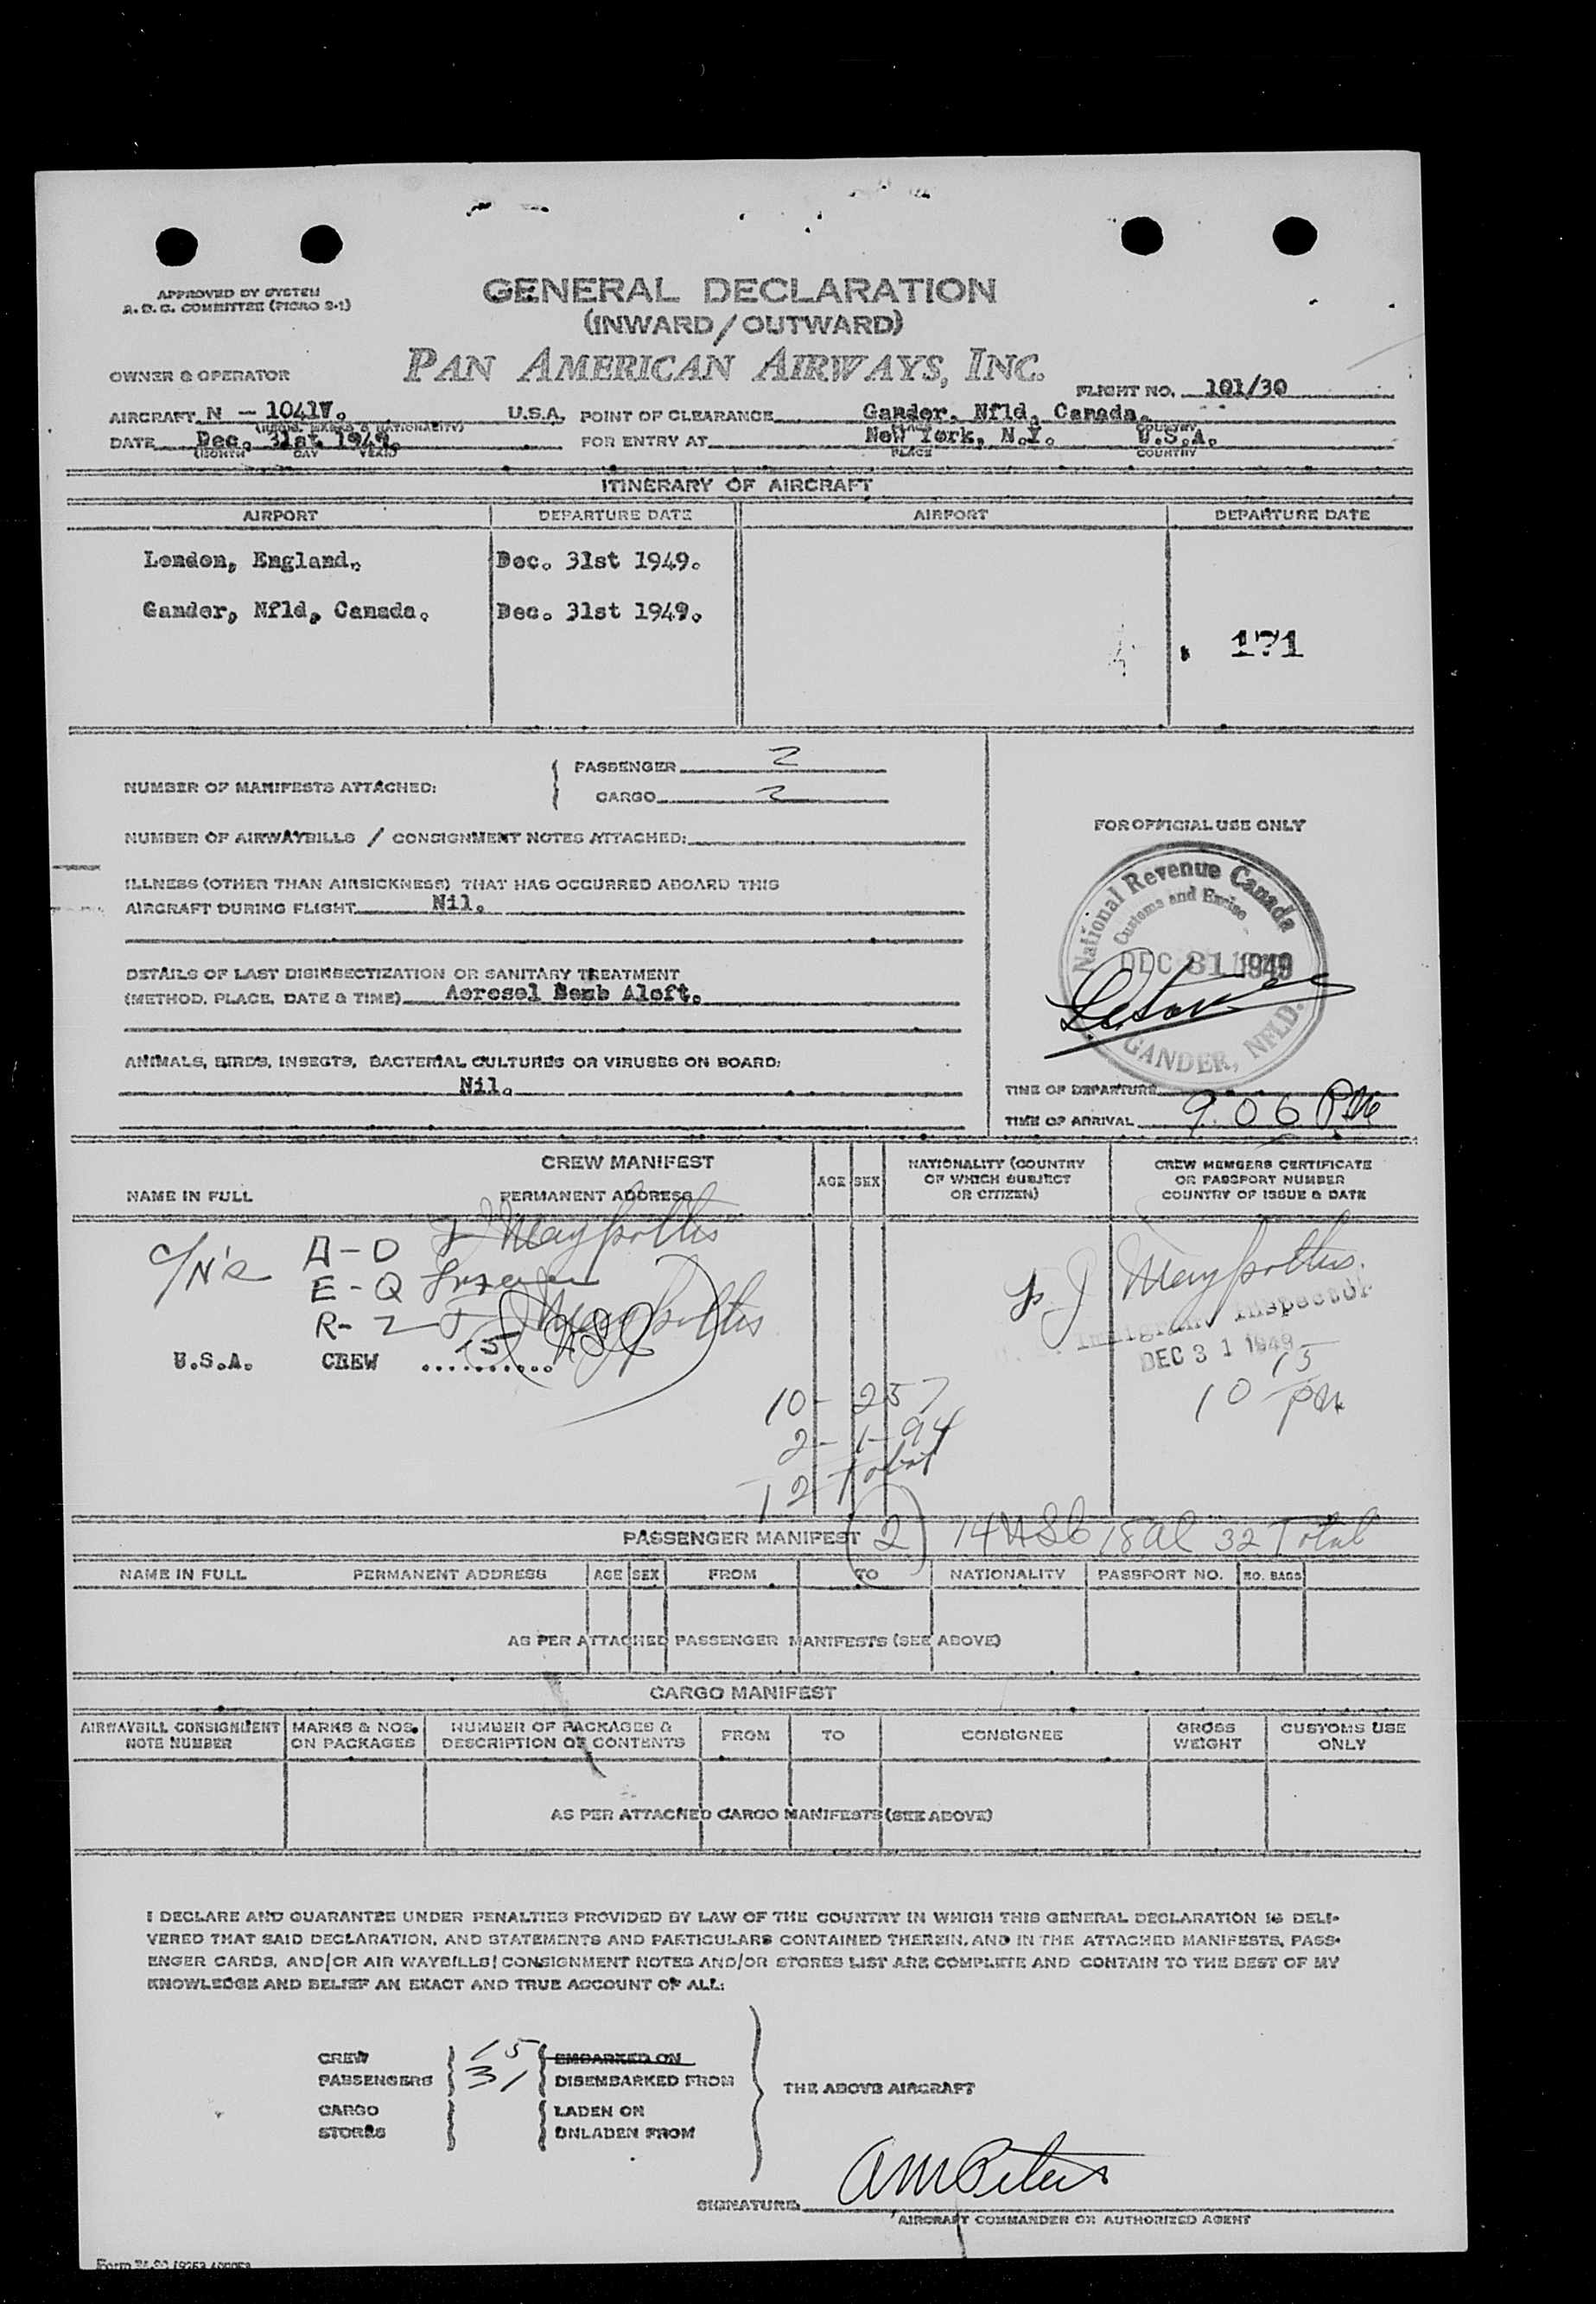 APPROVED BY SYSTEM
A.D.C. COMMITTEE (PICAO 2-1)
GENERAL DECLARATION
(INWARD/OUTWARD)
OWNER & OPERATOR PAN AMERICAN AIRWAYS, INC.
FLIGHT NO. 101/30
AIRCRAFT N - 1041V. U.S.A. POINT OF CLEARANCE Gander, Nfld, Canada.
(REGIS. MARKS & NATIONALITY) COUNTRY
DATE Dec. 31st 1949. FOR ENTRY AT New York, N.Y. U.S.A.
(MONTH DAY YEAR) PLACE COUNTRY
ITINERARY OF AIRCRAFT
AIRPORT DEPARTURE DATE AIRPORT DEPARTURE DATE
London, England. Dec. 31st 1949.
Gander, Nfld, Canada. Dec. 31st 1949.
171
NUMBER OF MANIFESTS ATTACHED: PASSENGER 2
CARGO 2
NUMBER OF AIRWAYBILLS / CONSIGNMENT NOTES ATTACHED:
ILLNESS (OTHER THAN AIRSICKNESS) THAT HAS OCCURRED ABOARD THIS
AIRCRAFT DURING FLIGHT Nil.
DETAILS OF LAST DISINSECTIZATION OR SANITARY TREATMENT
(METHOD, PLACE, DATE & TIME) Aerosel Bemb Aloft.
ANIMALS, BIRDS, INSECTS, BACTERIAL CULTURES OR VIRUSES ON BOARD:
Nil.
FOR OFFICIAL USE ONLY
National Revenue Canada
Customs and Excise
DEC 31 1949
GANDER, NFLD.
TIME OF DEPARTURE
TIME OF ARRIVAL 9.06 PM
CREW MANIFEST
NAME IN FULL PERMANENT ADDRESS AGE SEX NATIONALITY (COUNTRY OF WHICH SUBJECT OR CITIZEN) CREW MEMBERS CERTIFICATE OR PASSPORT NUMBER COUNTRY OF ISSUE & DATE
C/N's A-D
E-Q
R-Z
U.S.A. CREW .......... 15 USC
Immigrant Inspector
DEC 31 1949
10 15 pm
10 - 257
2 - 1-94
12 Total
PASSENGER MANIFEST (2) 14 USC 18 al 32 Total
NAME IN FULL PERMANENT ADDRESS AGE SEX FROM TO NATIONALITY PASSPORT NO. NO. BAGS
AS PER ATTACHED PASSENGER MANIFESTS (SEE ABOVE)
CARGO MANIFEST
AIRWAYBILL CONSIGNMENT NOTE NUMBER MARKS & NOS. ON PACKAGES NUMBER OF PACKAGES & DESCRIPTION OF CONTENTS FROM TO CONSIGNEE GROSS WEIGHT CUSTOMS USE ONLY
AS PER ATTACHED CARGO MANIFESTS (SEE ABOVE)
I DECLARE AND GUARANTEE UNDER PENALTIES PROVIDED BY LAW OF THE COUNTRY IN WHICH THIS GENERAL DECLARATION IS DELI-
VERED THAT SAID DECLARATION, AND STATEMENTS AND PARTICULARS CONTAINED THEREIN, AND IN THE ATTACHED MANIFESTS, PASS-
ENGER CARDS, AND/OR AIR WAYBILLS/CONSIGNMENT NOTES AND/OR STORES LIST ARE COMPLETE AND CONTAIN TO THE BEST OF MY
KNOWLEDGE AND BELIEF AN EXACT AND TRUE ACCOUNT OF ALL:
CREW 15 EMBARKED ON
PASSENGERS 31 DISEMBARKED FROM
THE ABOVE AIRCRAFT
CARGO LADEN ON
STORES UNLADEN FROM
SIGNATURE AM Peters
AIRCRAFT COMMANDER OR AUTHORIZED AGENT